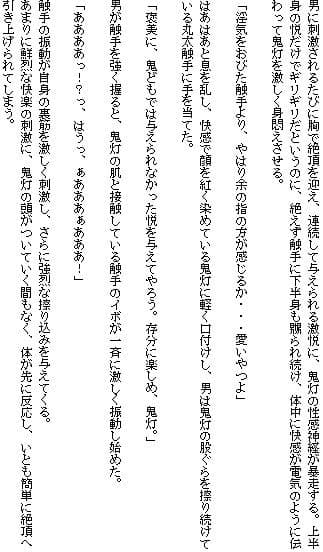 男に刺激されるたびに胸で絶頂を迎え、連続して与えられる激悦に、鬼灯の性感神経が暴走する。上半
身の悦だけでギリギリだというのに、絶えず触手に下半身も嬲られ続け、体中に快感が電気のように伝
わって鬼灯を激しく身悶えさせる。
「淫気をおびた触手より、やはり余の指の方が感じるか・・・愛いやつよ」
はあはあと息を乱し、快感で顔を紅く染めている鬼灯に軽く口付けし、男は鬼灯の股ぐらを擦り続けて
いる丸太触手に手を当てた。
「褒美に、鬼どもでは与えられなかった悦を与えてやろう。存分に楽しめ、鬼灯。」
男が触手を強く握ると、鬼灯の肌と接触している触手のイボが一斉に激しく振動し始めた。
「ああああっ！？っ、はうっ、ぁあああぁあああ！」
触手の振動が自身の裏筋を激しく刺激し、さらに強烈な擦り込みを与えてくる。
あまりに鮮烈な快楽の刺激に、鬼灯の頭がついていく間もなく、体が先に反応し、いとも簡単に絶頂へ
引き上げられてしまう。